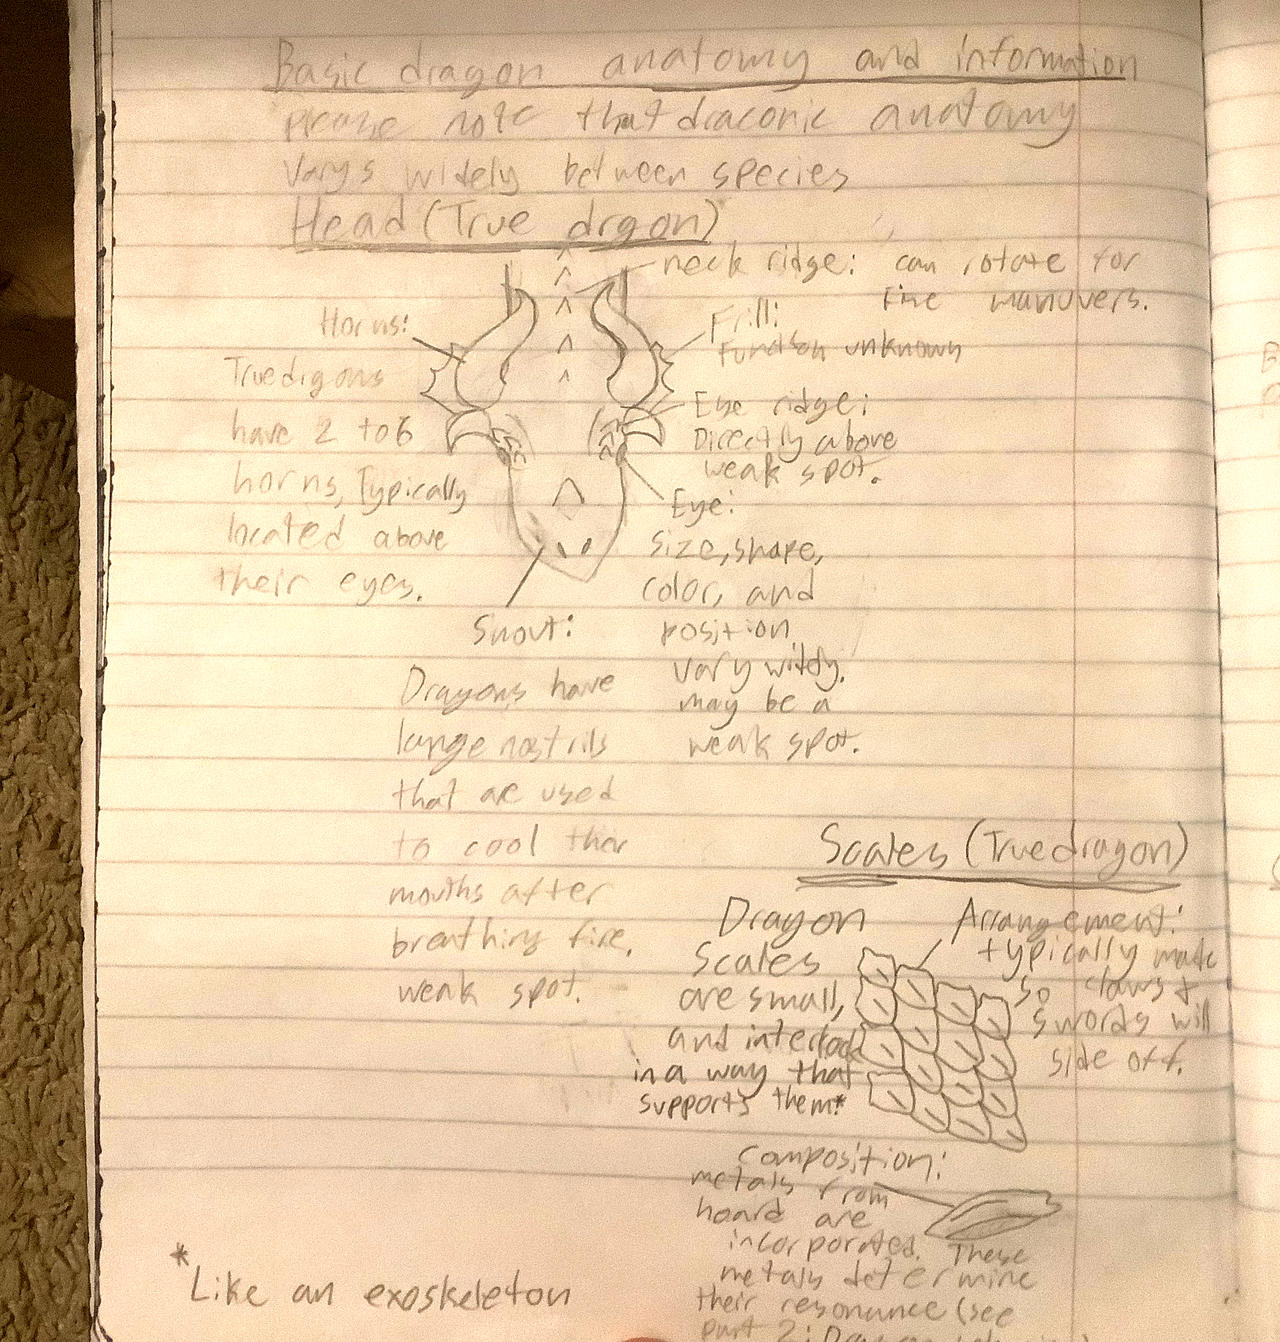 Basic dragon anatomy and information
please note that draconic anatomy
varys widely between species
Head (True drgon)
neck ridge: can rotate for
fine manuvers.
Horns:
True drgons
have 2 to 6
horns, Typically
located above
their eyes.
Frill:
function unknown
Eye ridge:
Directly above
weak spot.
Eye:
size, shape,
color, and
position
vary wildy.
may be a
weak spot.
Snout:
Dragons have
large nostrils
that are used
to cool thier
mouths after
breathing fire.
weak spot.
Scales (True dragon)
Dragon
Scales
are small,
and interlock
in a way that
supports them*
Arrangement:
typically made
so claws &
swords will
slide off.
Composition:
metals from
hoard are
incorporated. These
metals determine
their resonance (see
part 2: Dragon
*Like an exoskeleton